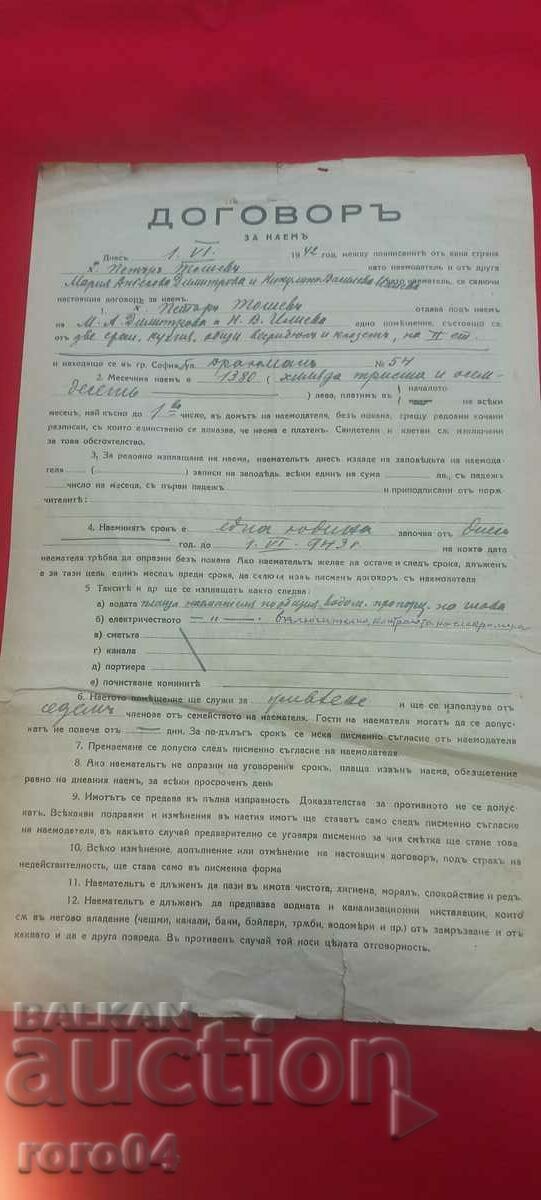 ДОГОВОРЪ
ЗА НАЕМЪ
Днесъ 1. VI. 1942 год. между подписаните отъ една страна
х. Петъръ Тошевъ като наемодатель и отъ друга
Мария Ангелова Димитрова и Василева Илиева като наематель, се сключи
настоящия договоръ за наемъ.
1. х Петъръ Тошевъ отдава подъ наемъ
на М. А. Димитрова и Н. В. Илиева едно помѣщение, състояще се
отъ две стаи, кухня, общи и клозетъ, на II ет.
и находяще се въ гр. София, ул. Драгоманъ № 54
2. Месечния наемъ е 1380 (хиляда триста и осемь
десеть) лева, платимъ въ началото на всѣки
месецъ, най късно до 1во число, въ домътъ на наемодателя, безъ покана, срещу редовни кочани
разписки, съ които единствено се доказва, че наема е платенъ. Свидетели и клетви сѫ изключени
за това обстоятелство.
3, За редовно изплащане на наема, наемательтъ днесъ издаде на заповѣдьта на наемода-
теля ( ) записи на заповѣдь всѣки единъ на сума лв., съ падежъ
число на месеца, съ първи падежъ и приподписани отъ поря
чителитѣ:
4. Наемниятъ срокъ е една година започва отъ днесъ
год. до 1. VI. 943 г. на която дата
наемателя трѣбва да опразни безъ покана Ако наемательтъ желае да остане и следъ срока, длъженъ
е за тази цель единъ месецъ преди срока, да сключи новъ писменъ договоръ съ наемодателя
5 Такситѣ и др ще се изплащатъ както следва:
а) водата плаща наемателя по общия водом. пропорц. на глава
б) електричеството — " — включително, контролата на електромера
в) сметьта
г) канала
д) портиера
е) почистване коминитѣ
6. Наетото помѣщение ще служи за живѣене и ще се използува отъ
седемъ членове отъ семейството на наемателя. Гости на наемателя могатъ да се допус-
катъ не повече отъ — дни. За по-дълъгъ срокъ се иска писменно съгласие отъ наемодателя
7. Пренаемане се допуска следъ писменно съгласие на наемодателя
8. Ако наемательтъ не опразни на уговорения срокъ, плаща извънъ наема, обезщетение
равно на дневния наемъ, за всѣки просроченъ день
9. Имотътъ се предава въ пълна изправность Доказателства за противното не се допус-
катъ. Всѣкакви поправки и изменѣния въ наетия имотъ ще ставатъ само следъ писменно съгласие
на наемодателя, въ какъвто случай предварително се уговаря писменно за чия смѣтка ще стане това
10. Всѣко изменѣние, допълнение или отмѣнение на настоящия договоръ, подъ страхъ на
недействителность, ще става само въ писменна форма
11. Наемательтъ е длъженъ да пази въ имота чистота, хигиена, моралъ, спокойствие и редъ.
12. Наемательтъ е длъженъ да предпазва водната и канализационни инсталации, които
сѫ въ негово владение (чешми, канали, бани, бойлери, трѫби, водомѣри и пр.) отъ замръзване и отъ
каквато и да е друга повреда. Въ противенъ случай той носи цѣлата отговорность.
BALKAN
auction
roro04